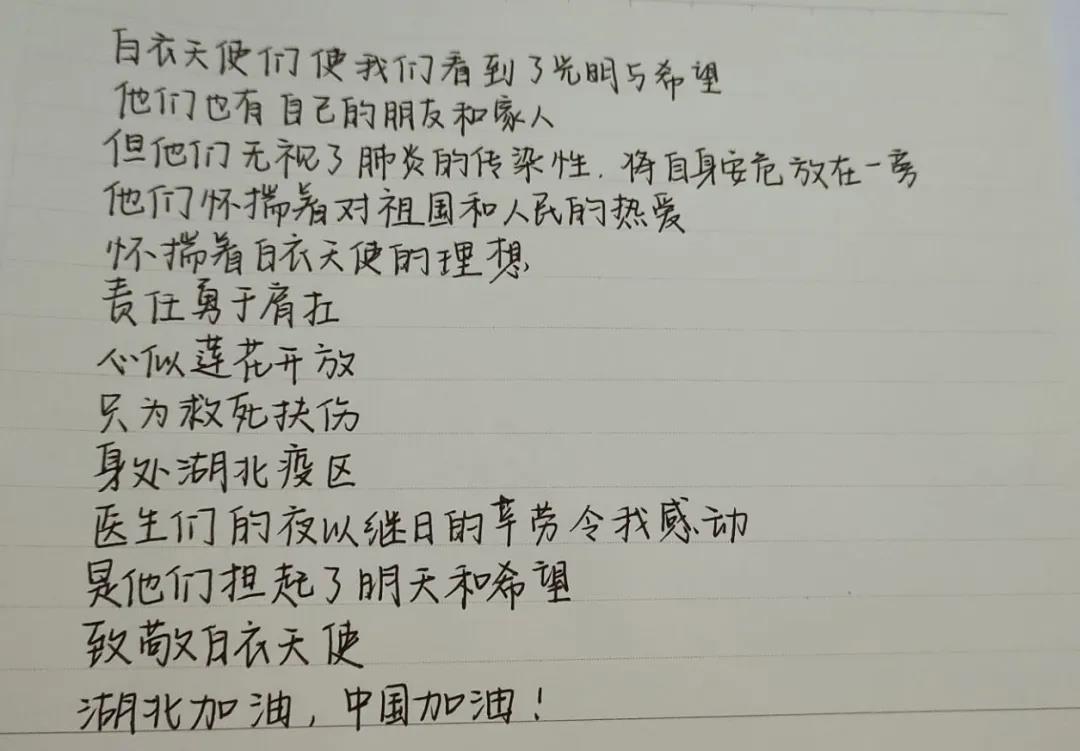 白衣天使们使我们看到了光明与希望
他们也有自己的朋友和家人
但他们无视了肺炎的传染性.将自身安危放在一旁
他们怀揣着对祖国和人民的热爱
怀揣着白衣天使的理想
责任勇于肩扛
心似莲花开放
只为救死扶伤
身处湖北疫区
医生们的夜以继日的辛劳令我感动
是他们担起了明天和希望
致敬白衣天使
湖北加油，中国加油！